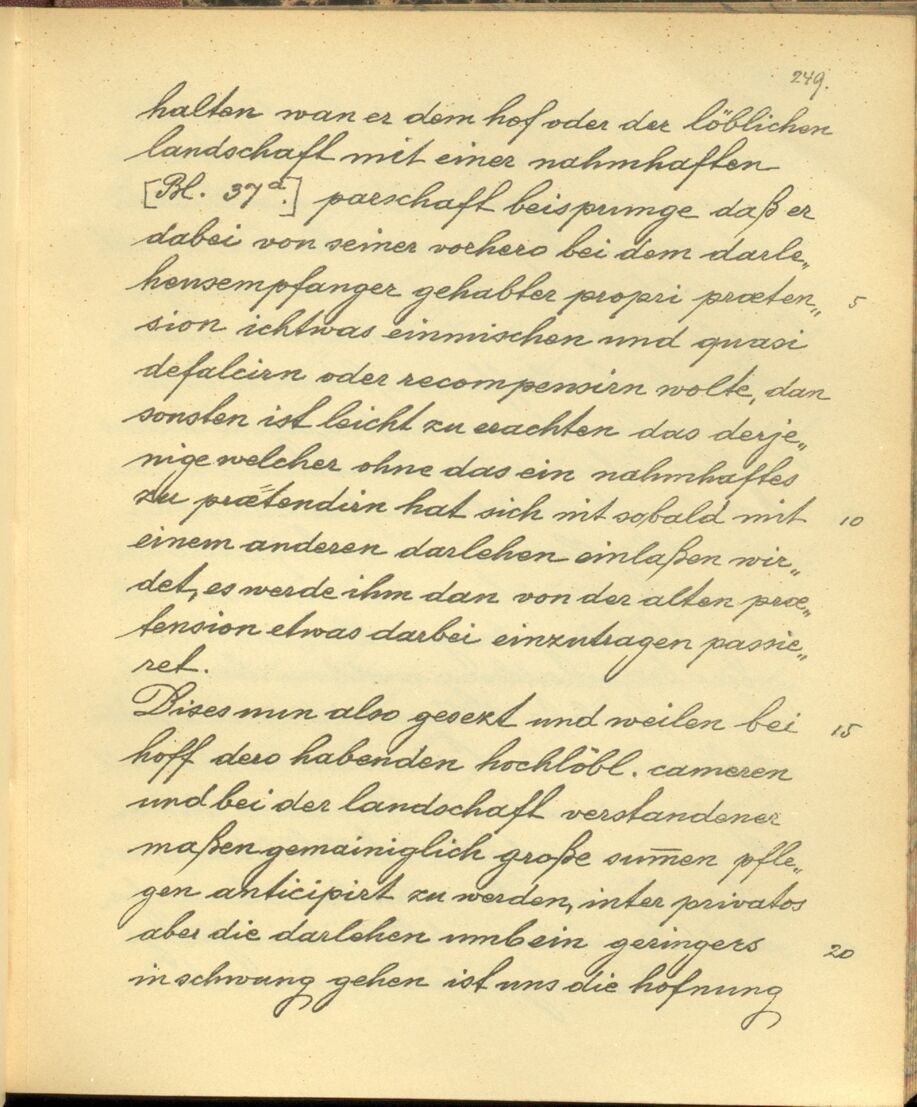 249.
halten wan er dem hof oder der löblichen
landschaft mit einer nahmhaften
[Bl. 37d.] parschaft beisprunge daß er
dabei von seiner vorhero bei dem darle„
hensempfanger gehabter propri præten„ 5
sion ichtwas einmischen und quasi
defalcirn oder recompensirn wolte, dan
sonsten ist leicht zu erachten das derje„
nige welcher ohne das ein nahmhaftes
zu prætendirn hat sich nit sobald mit 10
einem anderen darlehen einlaßen wir„
det, es werde ihm dan von der alten præ„
tension etwas darbei einzutragen passie„
ret.
Dises nun also gesezt und weilen bei 15
hoff dero habenden hochlöbl. cameren
und bei der landschaft verstandener
maßen gemainiglich große sum̅en pfle„
gen anticipirt zu werden, inter privatos
aber die darlehen umb ein geringers 20
in schwung gehen ist uns die hofnung